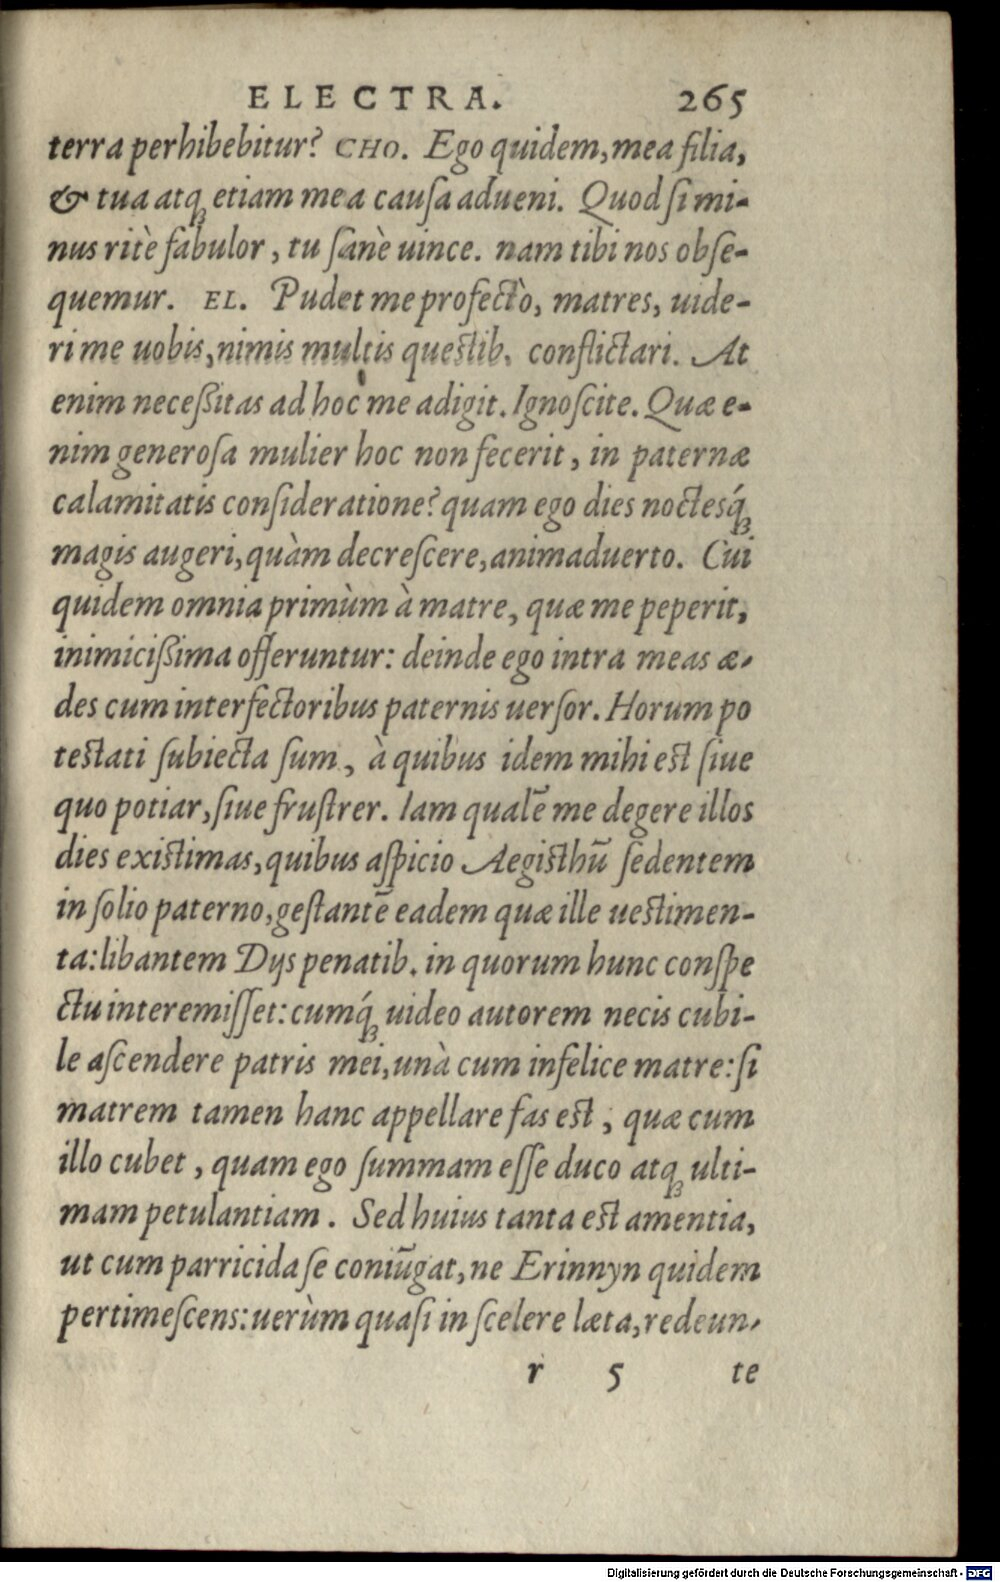 ELECTRA. 265
terra perhibebitur? CHO. Ego quidem, mea filia,
& tua atq; etiam mea cauſa adueni. Quod ſi mi-
nus ritè fabulor, tu ſanè uince. nam tibi nos obſe-
quemur. EL. Pudet me profectò, matres, uide-
ri me uobis, nimis multis queſtib. conflictari. At
enim neceßitas ad hoc me adigit. Ignoſcite. Quæ e-
nim generoſa mulier hoc non fecerit, in paternæ
calamitatis conſideratione? quam ego dies noctesq́;
magis augeri, quàm decreſcere, animaduerto. Cui
quidem omnia primùm à matre, quæ me peperit,
inimicißima offeruntur: deinde ego intra meas æ-
des cum interfectoribus paternis uerſor. Horum po
teſtati ſubiecta ſum, à quibus idem mihi eſt ſiue
quo potiar, ſiue fruſtrer. Iam qualē me degere illos
dies exiſtimas, quibus aſpicio Aegiſthū ſedentem
in ſolio paterno, geſtantē eadem quæ ille ueſtimen-
ta: libantem Dijs penatib. in quorum hunc conſpe
ctu interemiſſet: cumq́; uideo autorem necis cubi-
le aſcendere patris mei, unà cum infelice matre: ſi
matrem tamen hanc appellare fas eſt, quæ cum
illo cubet, quam ego ſummam eſſe duco atq; ulti-
mam petulantiam. Sed huius tanta eſt amentia,
ut cum parricida ſe coniūgat, ne Erinnyn quidem
pertimeſcens: uerùm quaſi in ſcelere læta, redeun-
r 5 te
Digitalisierung gefördert durch die Deutsche Forschungsgemeinschaft - DFG